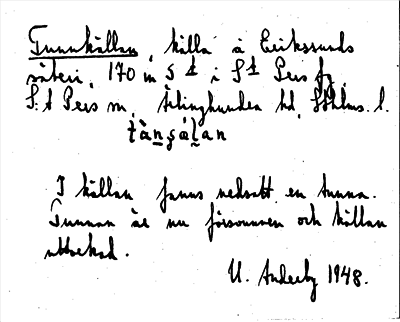 Tunnkällan, källa å Erikssunds
säteri, 170 m S i S:t Pers fg
S:t Pers sn, Ärlinghundra hd, Sthlms. l.
I källan fanns nedsatt en tunna.
Tunnan är nu försvunnen och källan
uttorkad.
U. Anderby 1948.